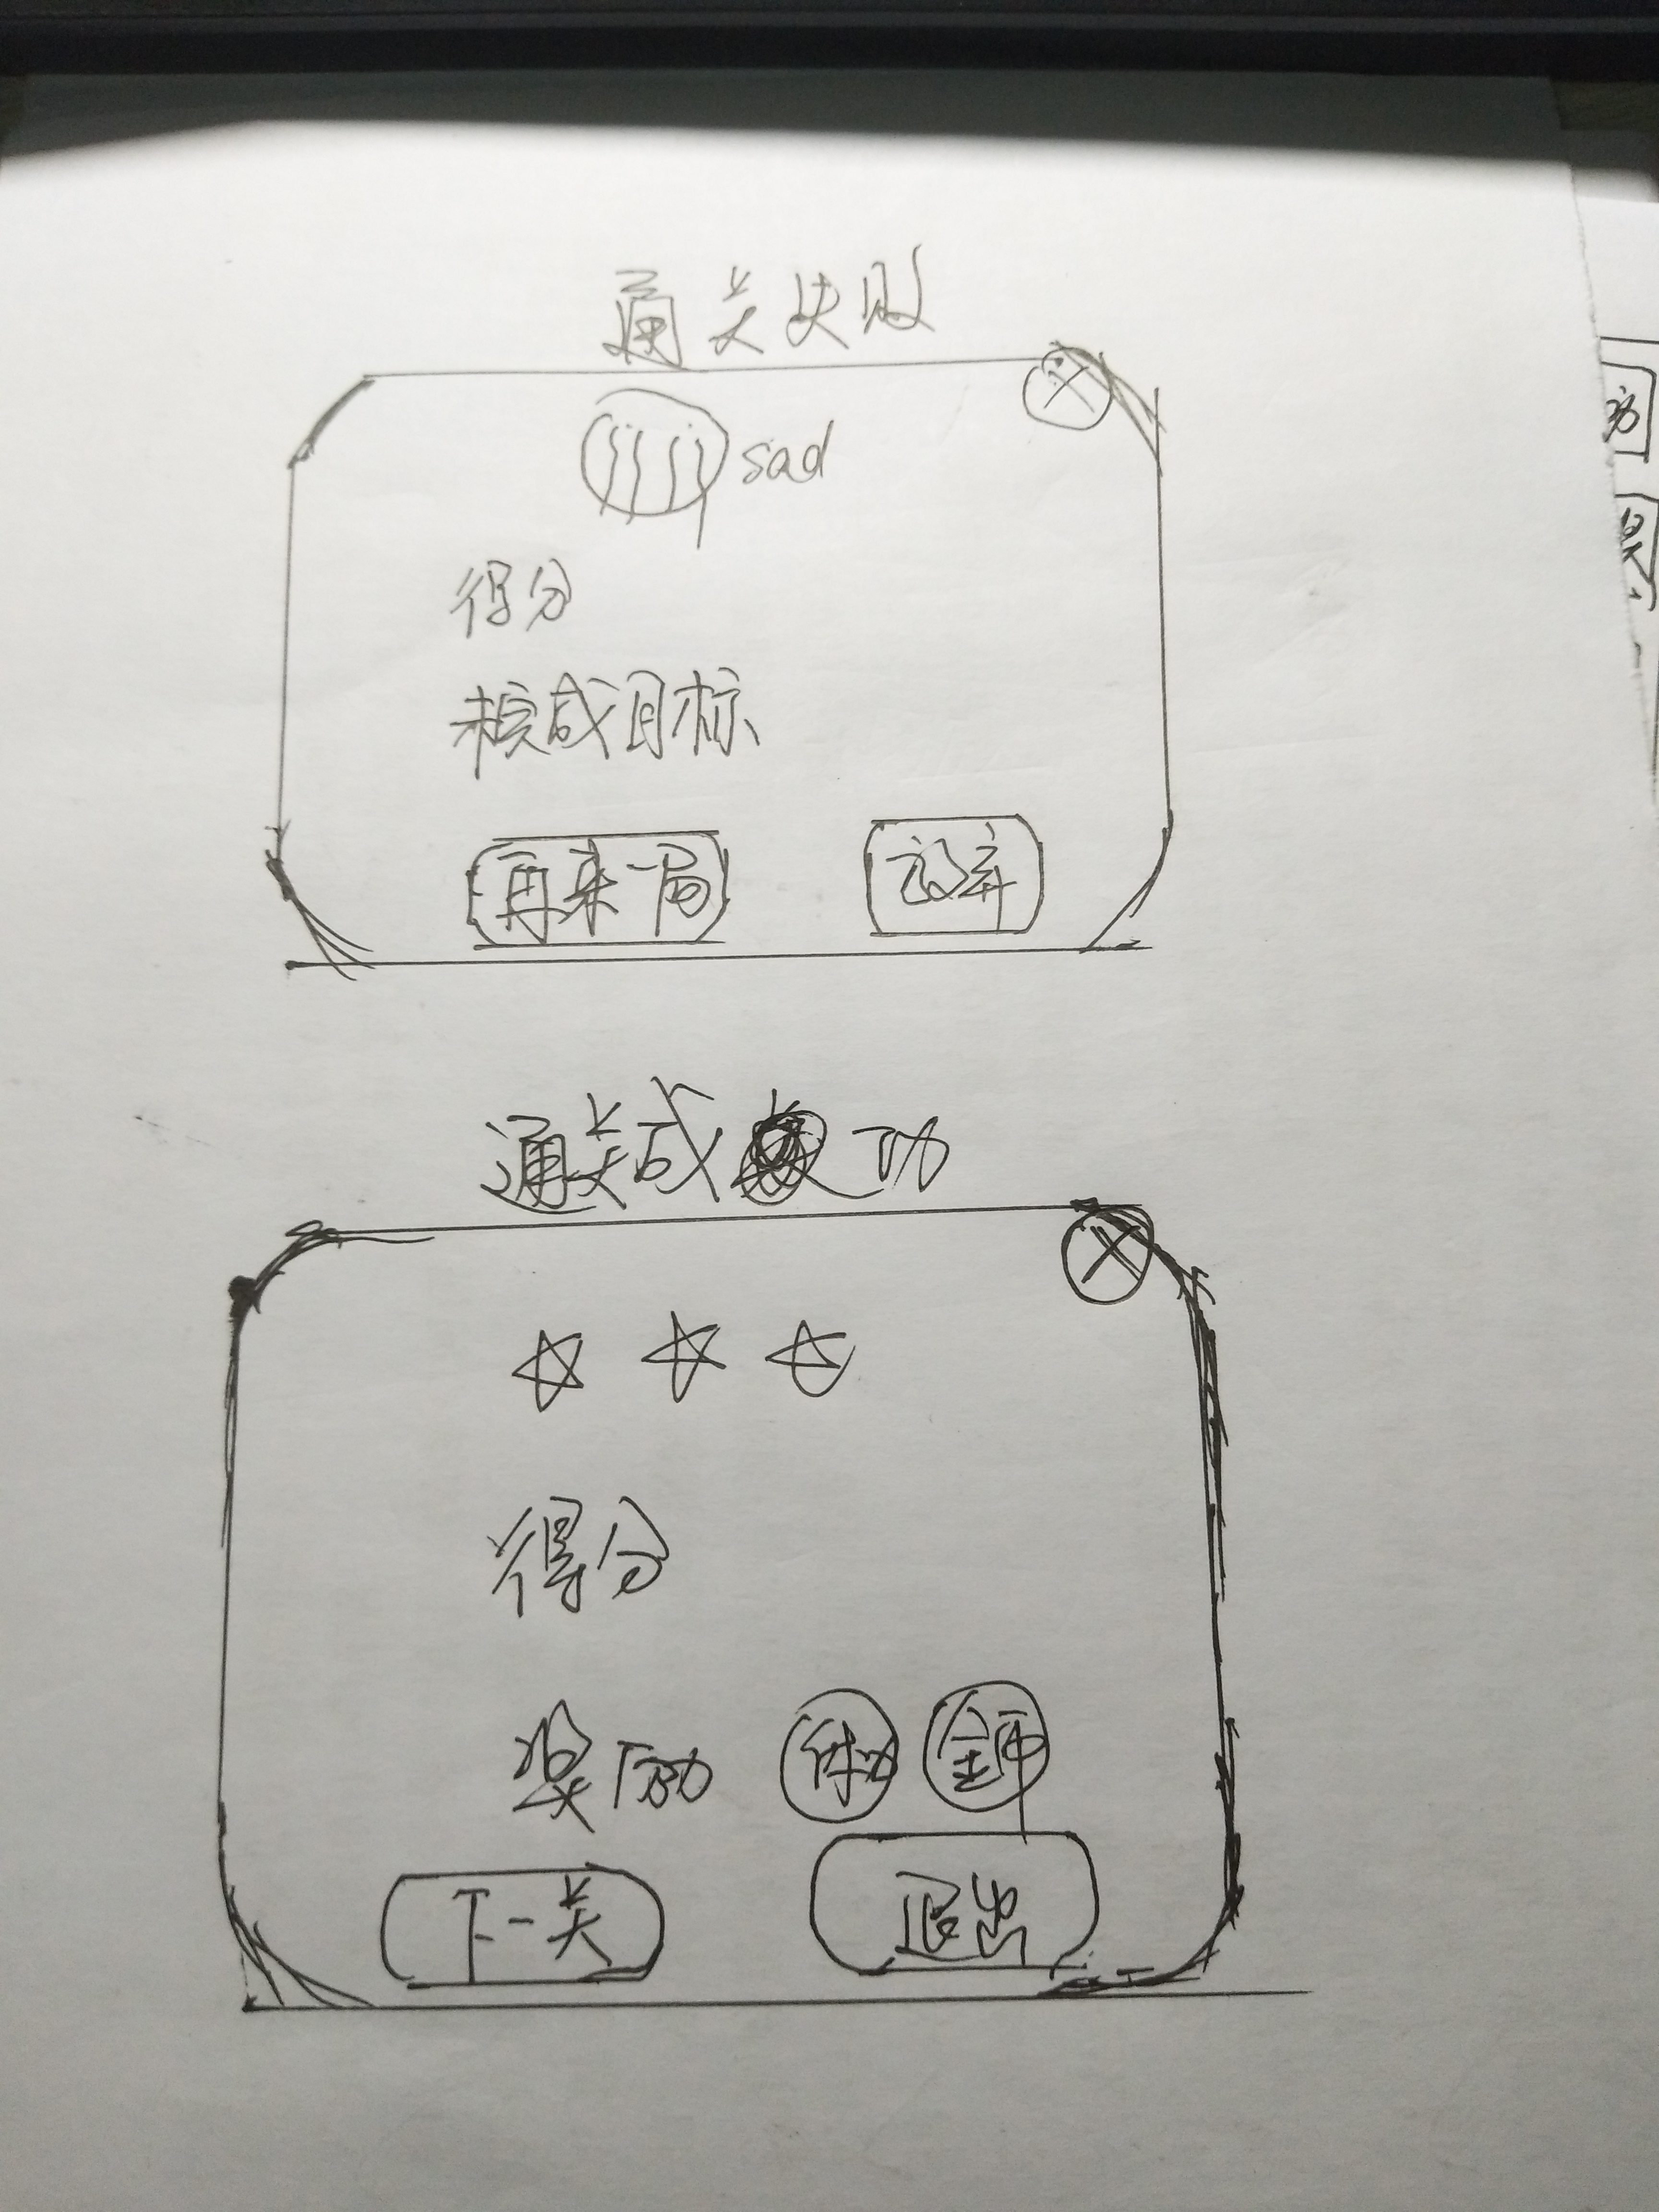 通关失败
sad
得分
未完成目标
再来一局
放弃
通关成功
得分
奖励 体力 金币
下一关
退出